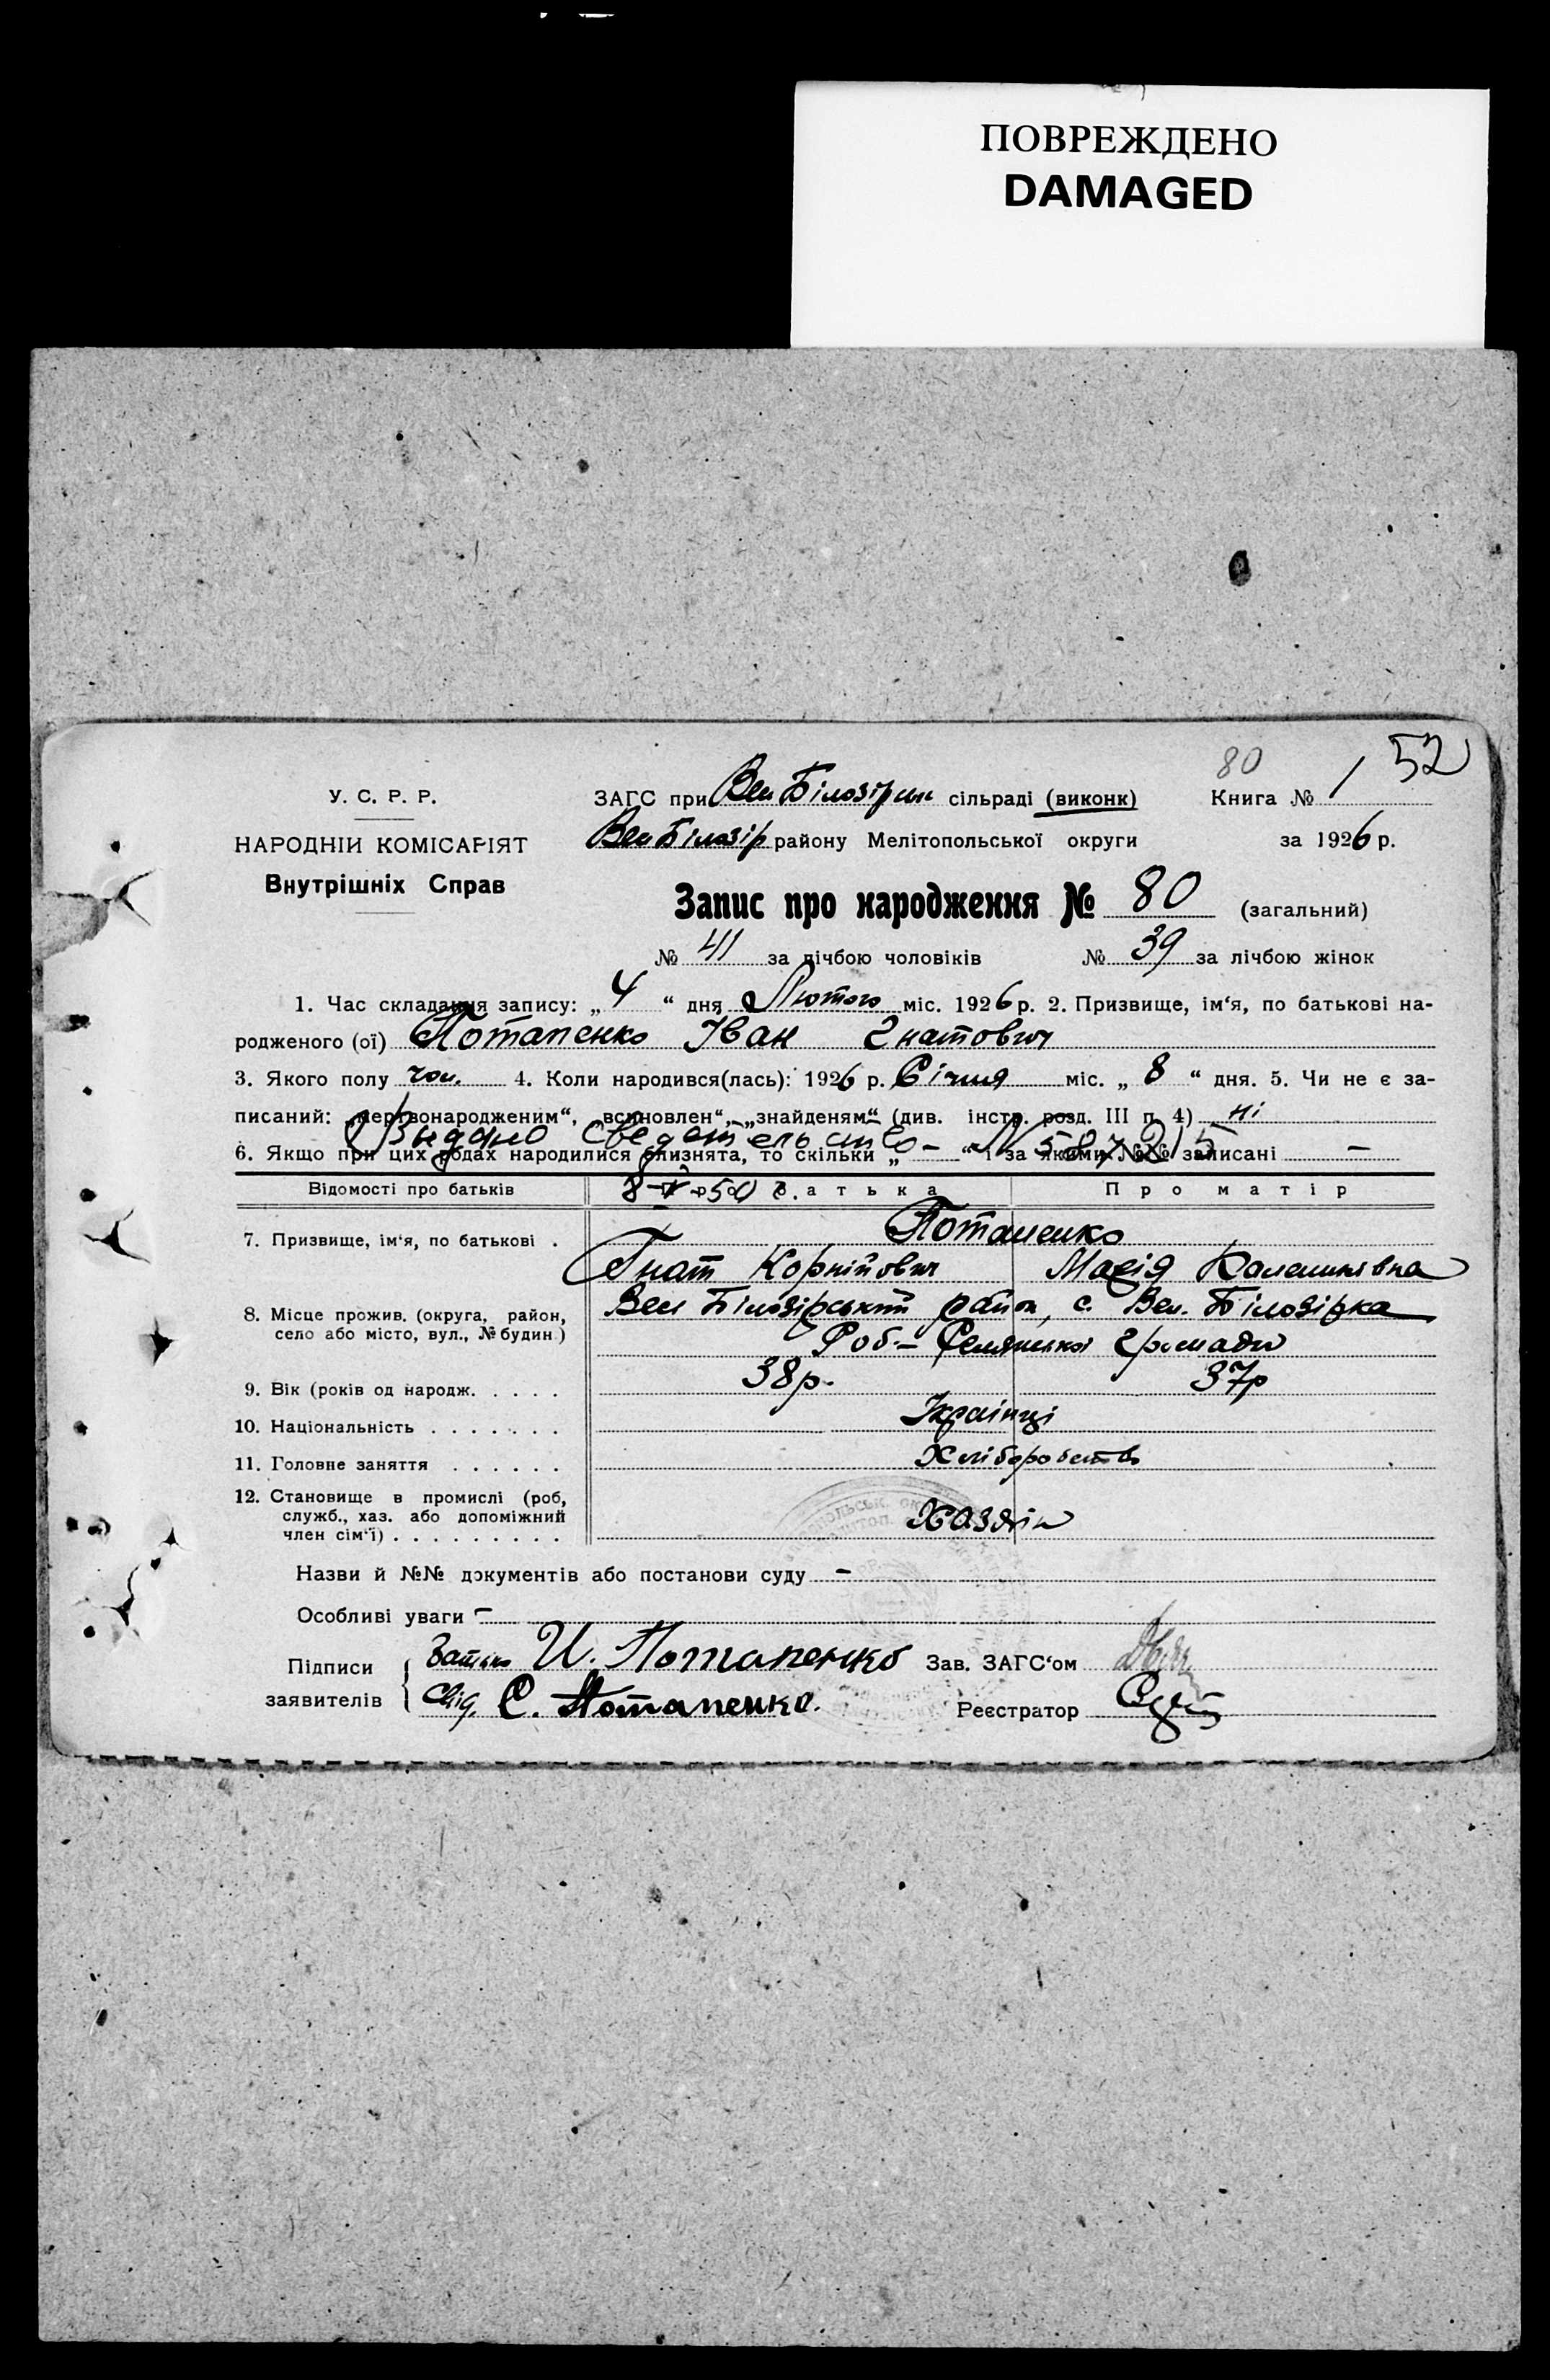 ПОВРЕЖДЕНО
DAMAGED
80 52
У. С. Р. Р.
ЗАГС при Вел Білозірськ сільраді (виконк) Книга № 1
НАРОДНІЙ КОМІСАРІЯТ
Вел Білозір району Мелітопольської округи за 1926 р.
Внутрішніх Справ
Запис про народження № 80 (загальний)
№ 41 за лічбою чоловіків № 39 за лічбою жінок
1. Час складання запису: „ 4 “ дня Лютого міс. 1926 р. 2. Призвище, ім‘я, по батькові на-
родженого (ої) Потапенко Іван Гнатович
3. Якого полу чол. 4. Коли народився(лась): 1926 р. Січня міс. „ 8 “ дня. 5. Чи не є за-
писаний: „мертвонародженим“, „всиновлен“, „знайденям“ (див. інстр. розд. III п. 4) ні
Выдано свидетельство №
6. Якщо при цих родах народилися близнята, то скільки „ — “ і за якими №№ записані —
Відомості про батьків Про батька Про матір
7. Призвище, ім‘я, по батькові . Потапенко
Гнат Корнійович Марія
8. Місце прожив. (округа, район, село або місто, вул., № будин.) Вел Білозірський район, с. Вел. Білозірка
Роб.- Селянської громади
9. Вік (років од народж. . . . . 38р. 37р
10. Національність . . . . . . . Українці
11. Головне заняття . . . . . . Хліборобство
12. Становище в промислі (роб,
служб., хаз. або допоміжний
член сім‘ї) . . . . . . . . . Хазяїн
Назви й №№ документів або постанови суду —
Особливі уваги —
Підписи заявителів Батько И. Потапенко Зав. ЗАГС‘ом
Свід. С. Потапенко. Реєстратор